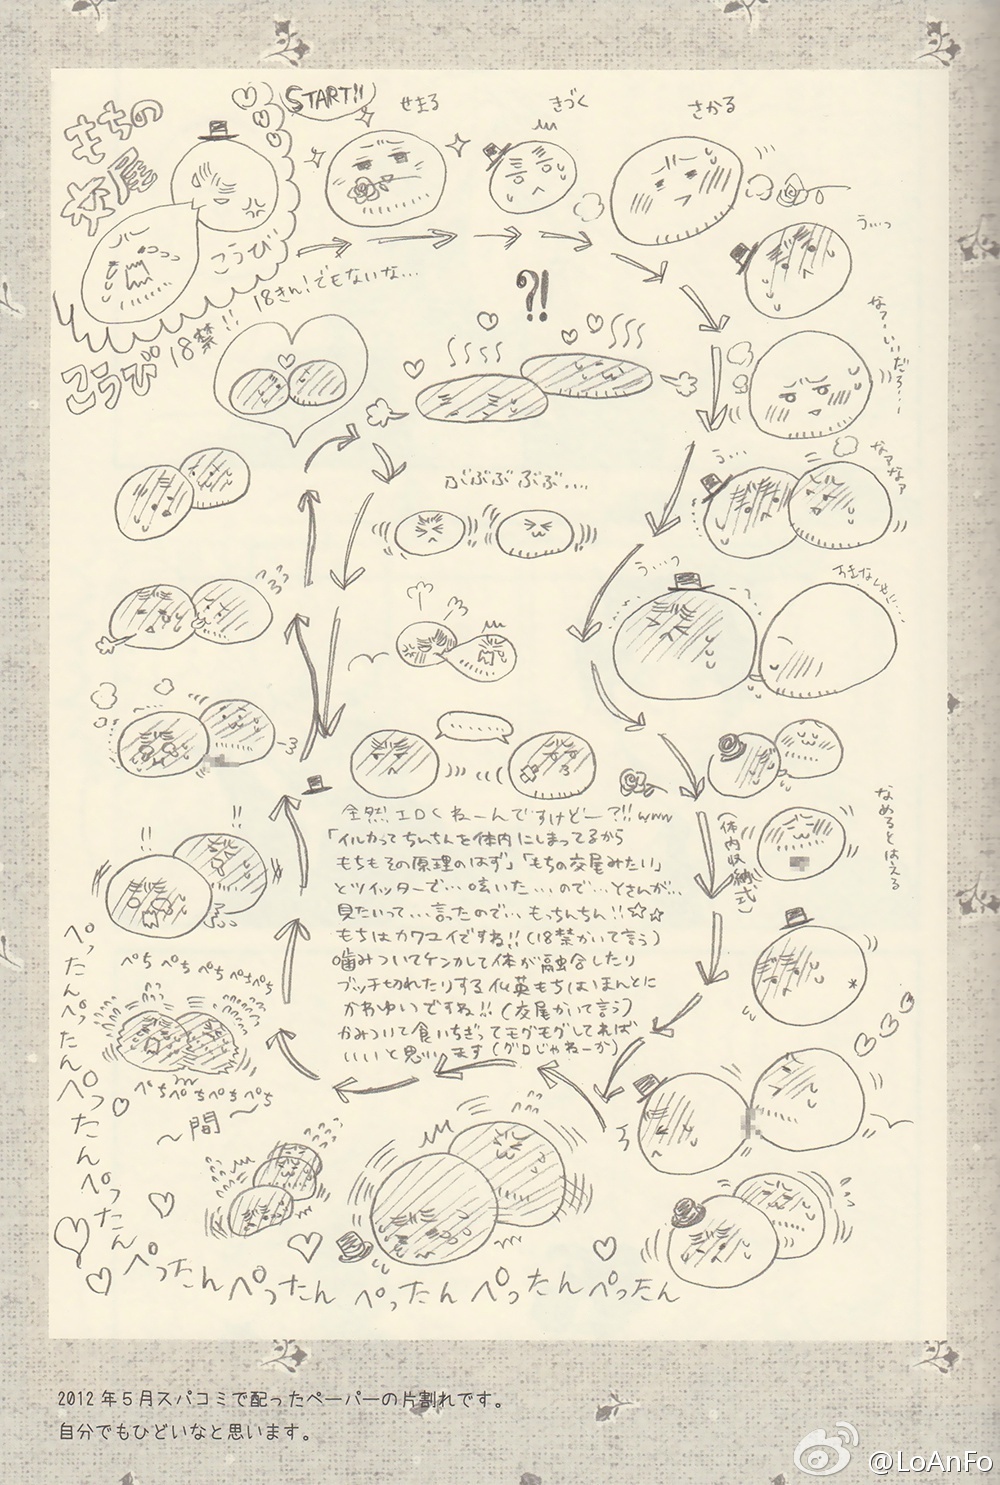 もちの
交尾
こうび
START!!
せまる
きづく
さかる
こうび
18禁!!
18きん!でもないな…
?!
うぃっっ
なァーいいだろー!
う…
なァなァ
うぃ…っ
ぶぶぶぶぶ…
……
なめるとはえる
(体内収納式)
全然エロくねーんですけどー?!!www
「イルカってちんちんを体内にしまってるから
もちもその原理のはず」「もちの交尾みたい」
とツイッターで…呟いた…ので…とさんが…
見たいって…言ったので…もっちんちん!!☆☆
もちはカワユイですね!!(18禁かいて言う)
噛みついてケンカして体が融合したり
ブッチ切れたりする仏英もちはほんとに
かわゆいですね!!(交尾かいて言う)
かみついて食いちぎってモグモグしてれば
いいと思います(グロじゃねーか)
!!
!!
ぺち ぺち ぺち ぺちぺち
ぺちぺちぺちぺち
~間~
ぺったんぺったんぺったんぺったん
ぺったんぺったん ぺったんぺったんぺったん
2012年5月スパコミで配ったペーパーの片割れです。
自分でもひどいなと思います。
@LoAnFo